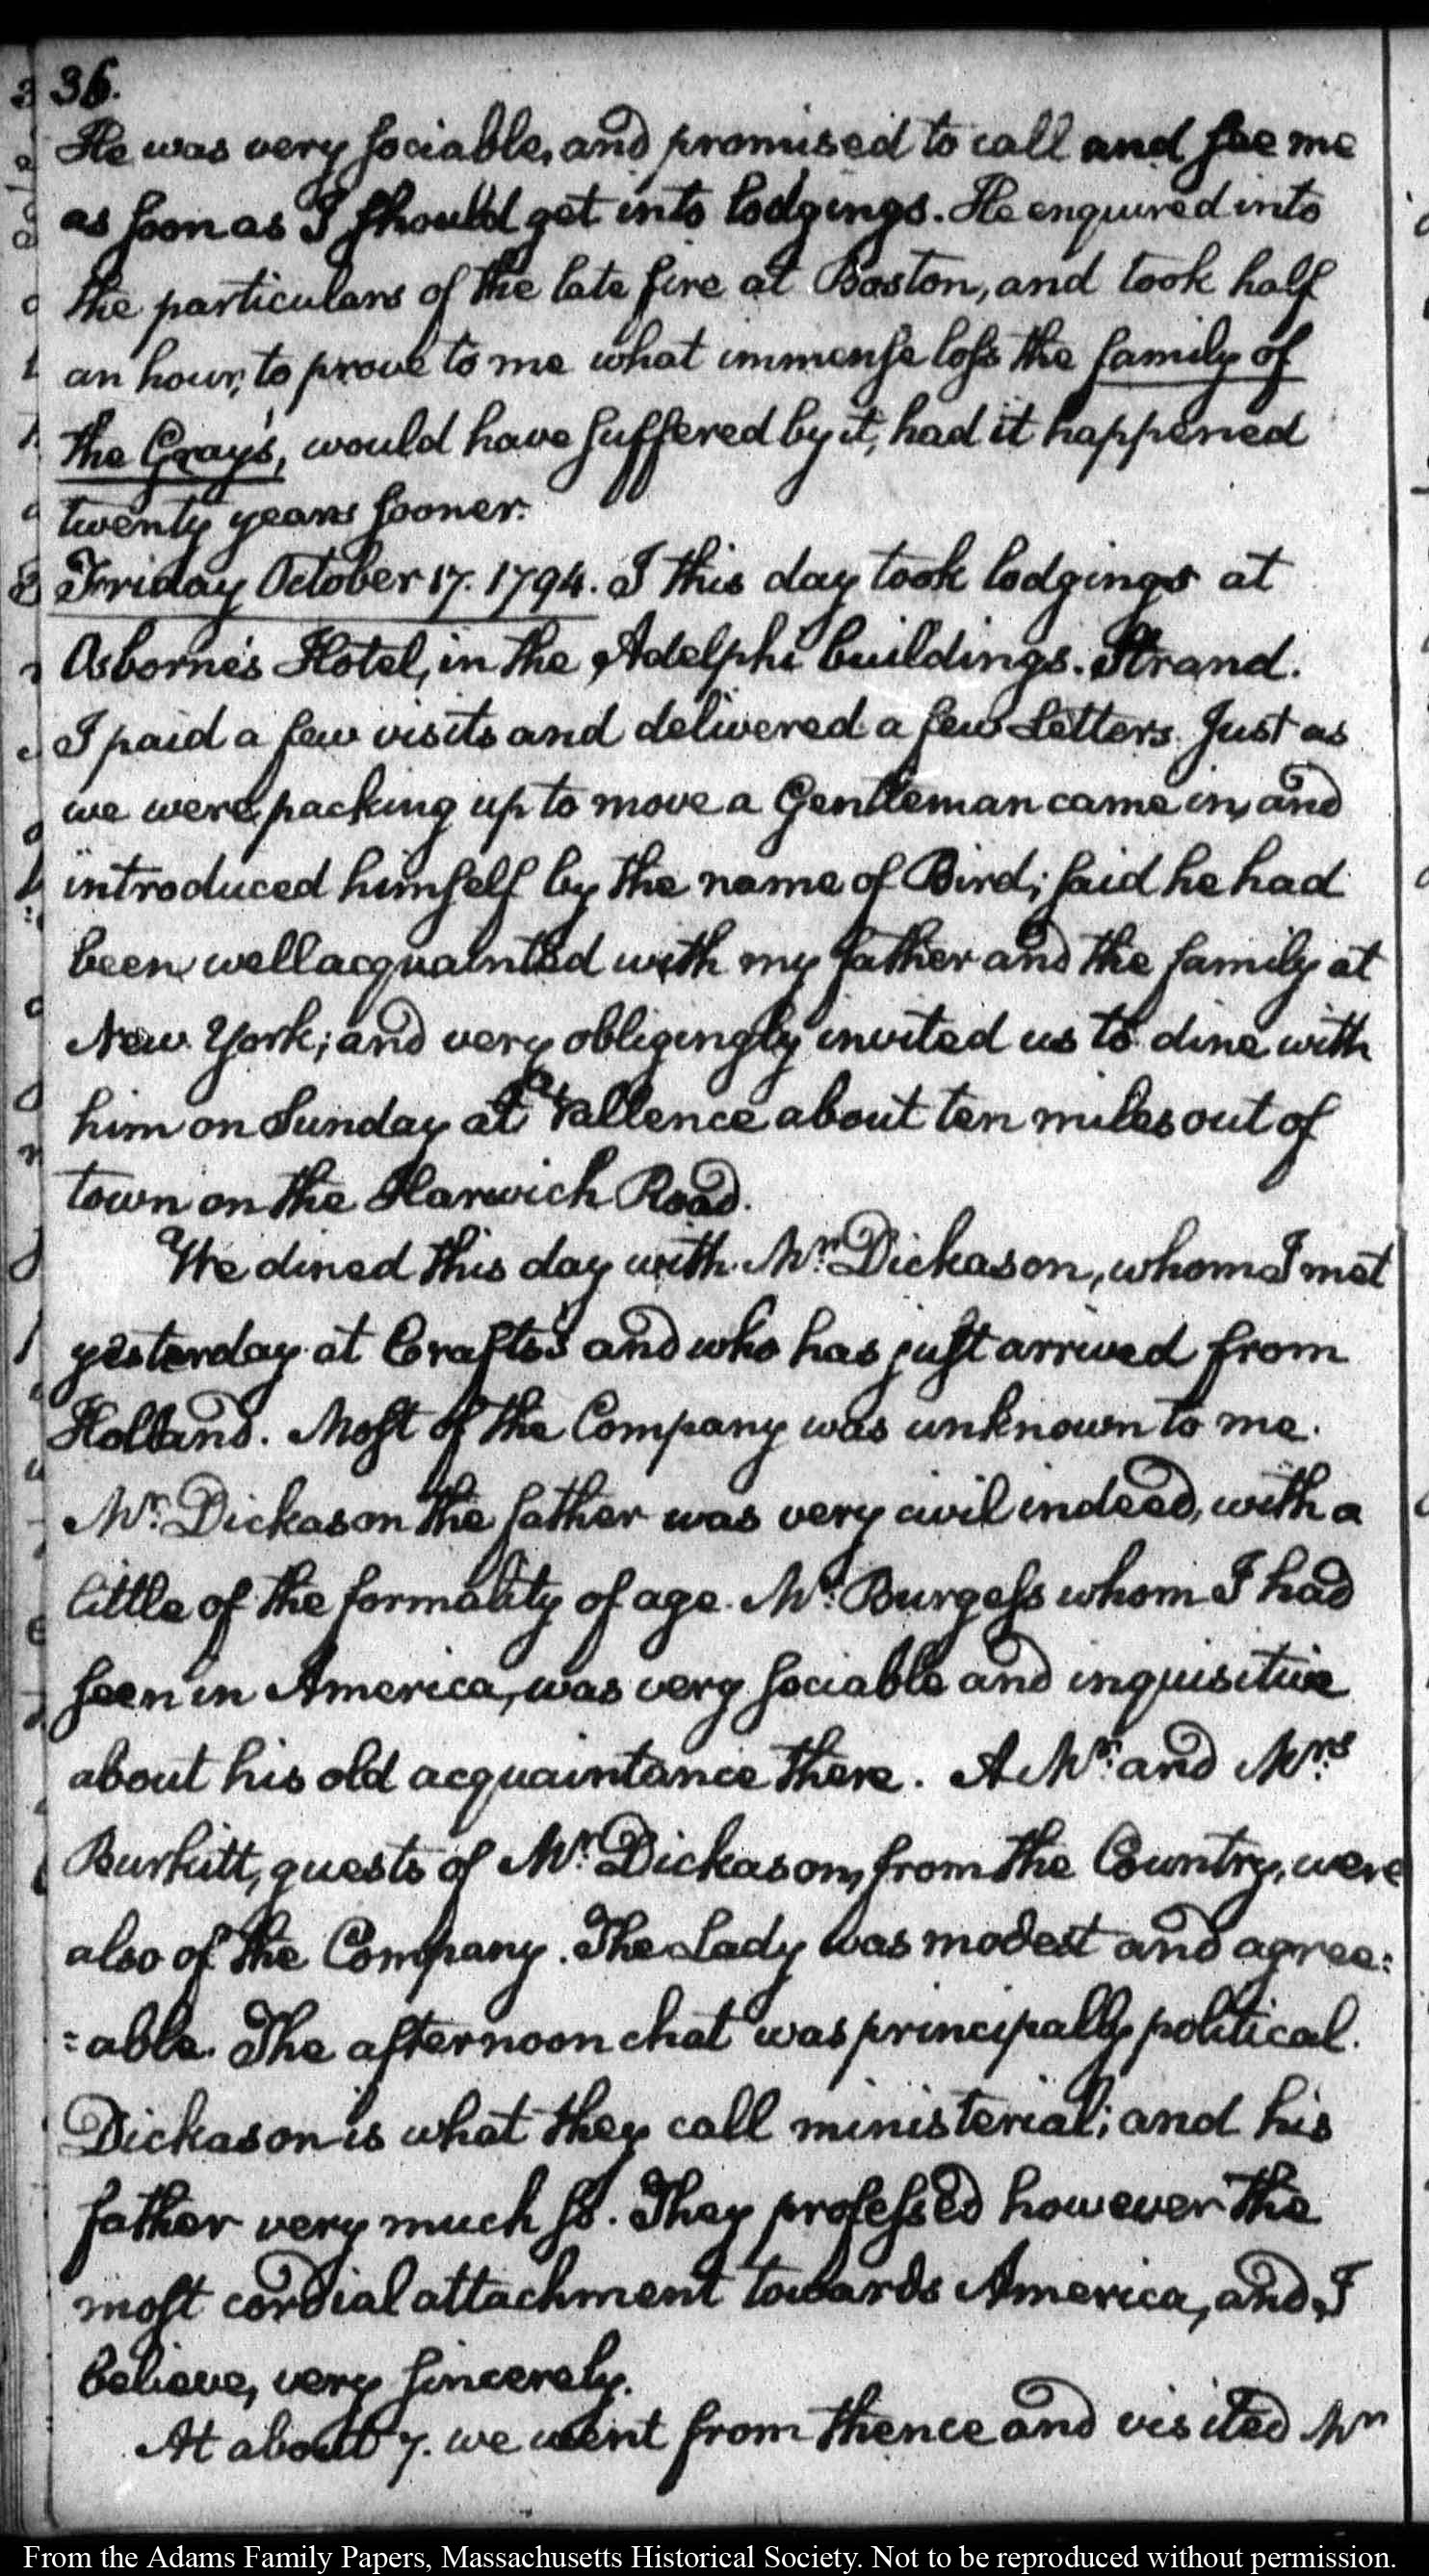 36.
He was very sociable, and promised to call and see me
as soon as I should get into lodgings. He enquired into
the particulars of the late fire at Boston, and took half
an hour, to prove to me what immense loss the family of
the Gray's, would have suffered by it, had it happened
twenty years sooner.
Friday October 17. 1794. I this day took lodgings at
Osborne's Hotel, in the Adelphi buildings. Strand.
I paid a few visits and delivered a few Letters. Just as
we were packing up to move a Gentleman came in, and
introduced himself by the name of Bird; said he had
been well acquainted with my father and the family at
New York; and very obligingly invited us to dine with
him on Sunday at about ten miles out of
town on the Harwich Road.
We dined this day with Mr. Dickason, whom I met
yesterday at Crafts's and who has just arrived from
Holland. Most of the Company was unknown to me.
Mr. Dickason the father was very civil indeed, with a
little of the formality of age. Mr. Burgess whom I had
seen in America, was very sociable and inquisitive
about his old acquaintance there. A Mr. and Mrs.
Burkitt, guests of Mr. Dickason, from the Country, were
also of the Company. The Lady was modest and agree=
=able. The afternoon chat was principally political.
Dickason is what they call ministerial; and his
father very much so. They professed however the
most cordial attachment towards America, and, I
believe, very sincerely.
At about 7. we went from thence and visited Mr
From the Adams Family Papers, Massachusetts Historical Society. Not to be reproduced without permission.